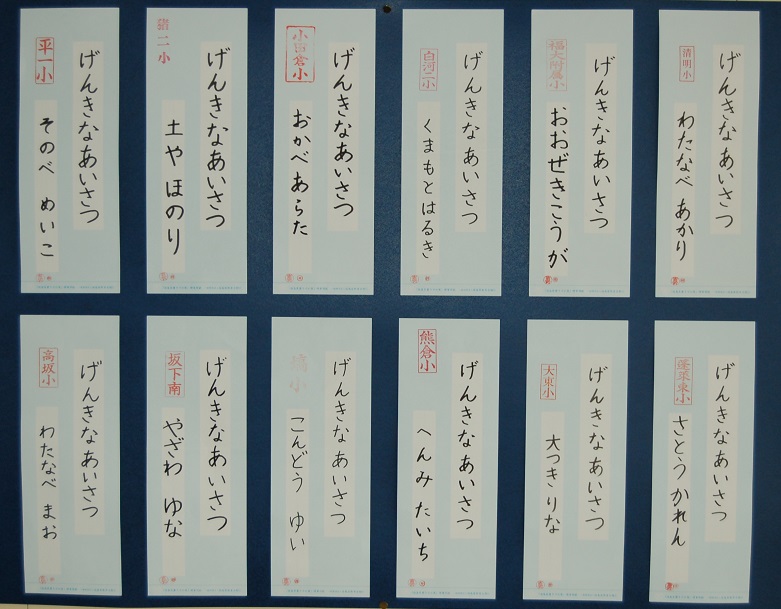 げんきなあいさつ
清明小
わたなべ あかり
げんきなあいさつ
福大附属小
おおぜきこうが
げんきなあいさつ
白河二小
くまもとはるき
げんきなあいさつ
小田倉小
おかべあらた
げんきなあいさつ
猪二小
土や ほのり
げんきなあいさつ
平一小
そのべ めいこ
げんきなあいさつ
蓬莱東小
さとうかれん
げんきなあいさつ
大東小
大つきりな
げんきなあいさつ
熊倉小
へんみ たいち
げんきなあいさつ
小
こんどう ゆい
げんきなあいさつ
坂下南
やざわ ゆな
げんきなあいさつ
高坂小
わたなべ まお